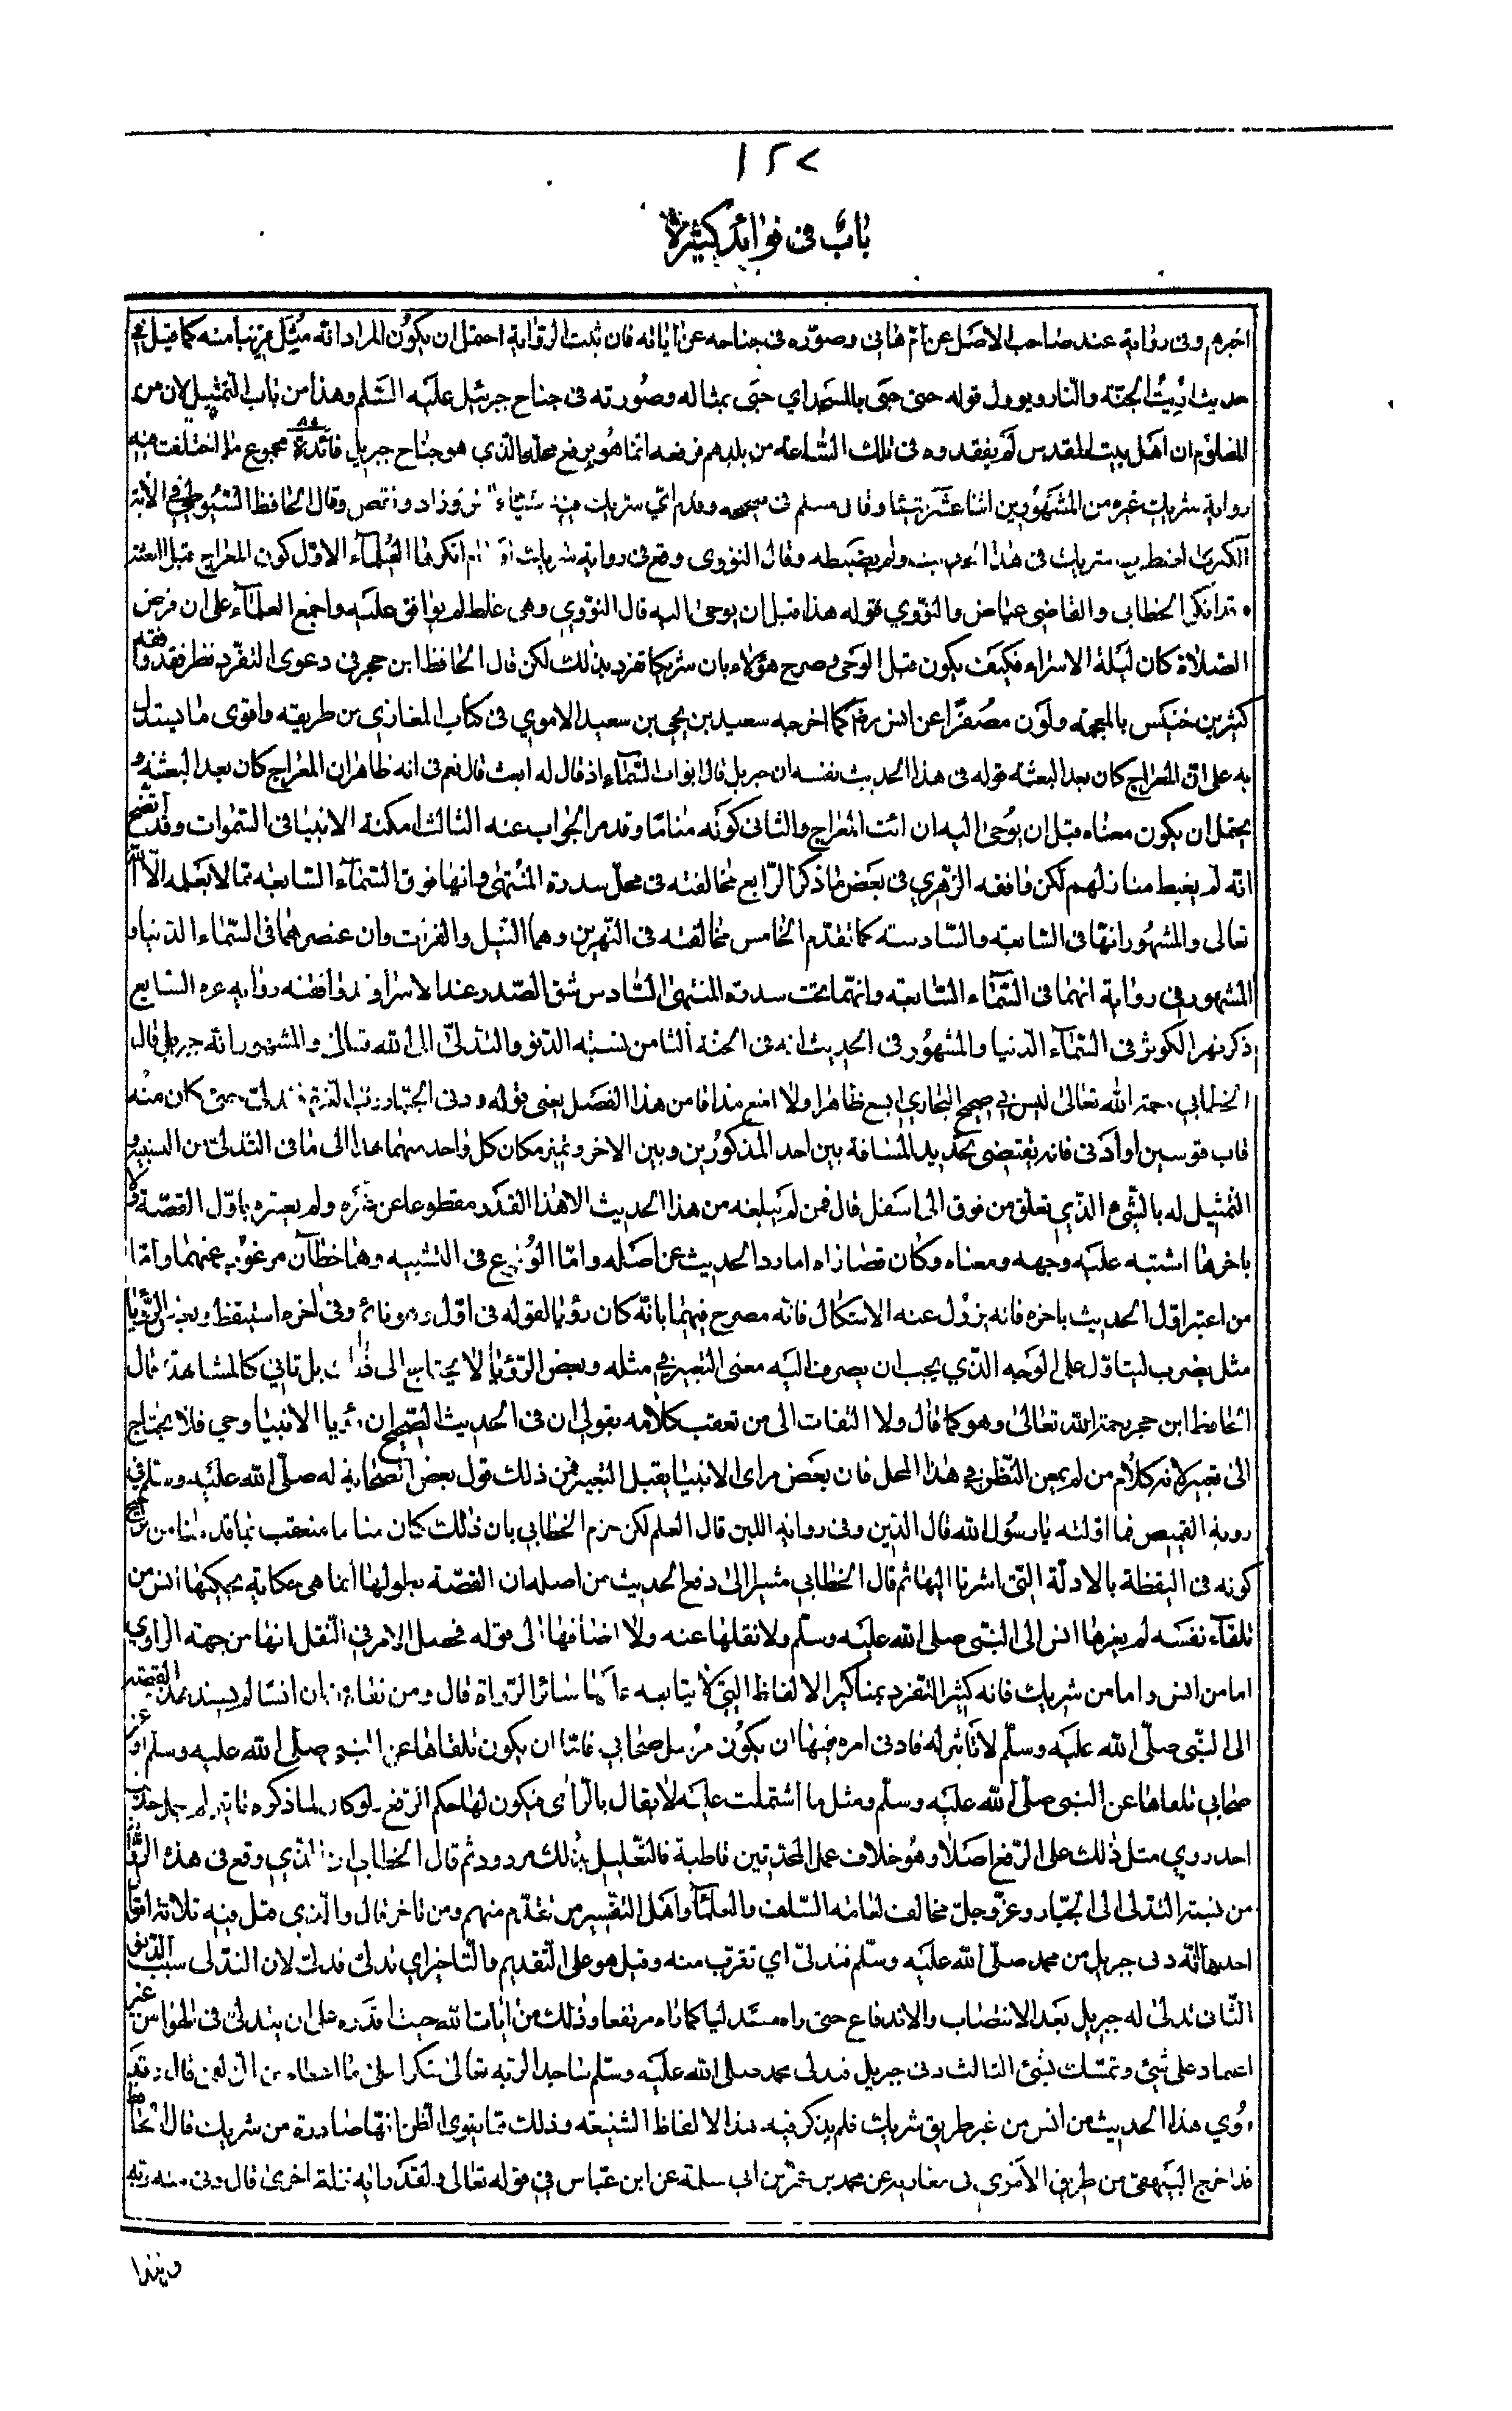 ١٢٧
باب في فوائد كثيرة
اخبرهم وفى رواية عند صاحب الاصل عن ام هانى وصوره فى جناحه عن اياته فان ثبت الرواية احتمل ان يكون المراد انه مثل قريبا منه كما قيل في
حديث اريت الجنة والنار ويوول قوله حتى جيئ بالمسجد اي جيئ بمثاله وصورته فى جناح جبرئيل عليه السلم وهذا من باب التمثيل لان من
المعلوم ان اهل بيت المقدس لم يفقدوه فى تلك الساعة من بلدهم فرفعه انما هو برفع محله الذي هو جناح جبريل فائدة مجموع ما اختلفت فيه
رواية شريك غيره من المشهورين اثنا عشر شيئا وقال مسلم فى صحيحه وقدم اي شريك فيه شيئا وزاد ونقص وقال الحافظ السيوطي في الآية
الكبرى اضطرب شريك فى هذا ولم يضبطه وقال النووى وقع فى رواية شريك انكرها العلماء الاول كون المعراج قبل البعثة
قد انكرها الخطابى والقاضى عياض والنووي قوله هذا قبل ان يوحى اليه قال النووي وهى غلط لم يوافق عليه واجمع العلماء على ان فرض
الصلاة كان ليلة الاسراء فكيف يكون قبل الوحي وصرح هؤلاء بان شريكا تفرد بذلك لكن قال الحافظ ابن حجر فى دعوى التفرد نظر فقد وافقه
كثير بن خنيس بالمعجمة ونون مصغرا عن انس كما اخرجه سعيد بن يحيى بن سعيد الاموي فى كتاب المغازي من طريقه واقوى ما يستدل
به على ان المعراج كان بعد البعثة قوله فى هذا الحديث نفسه ان جبريل قال لبواب السماء اذ قال له ابعث قال نعم فى انه ظاهر ان المعراج كان بعد البعثة و
يحتمل ان يكون معناه قبل ان يوحى اليه ان ائت المعراج والثانى كونه مناما وقد مر الجواب عنه الثالث امكنة الانبيا فى السموات وقد اتضح
انه لم يضبط منازلهم لكن وافقه الزهري فى بعض ما ذكر الرابع مخالفته فى محل سدرة المنتهى وانها فوق السماء السابعة مما لا يعلمه الا الله
تعالى والمشهور انها فى السابعة والسادسة كما تقدم الخامس مخالفته فى النهرين وهما النيل والفرات وان عنصرهما فى السماء الدنيا و
المشهور فى رواية انهما فى السماء السابعة وانهما تحت سدرة المنتهى السادس شق الصدر عند الاسراء وافقته رواية غيره السابع
ذكر نهر الكوثر فى السماء الدنيا والمشهور فى الحديث انه فى الجنة الثامن نسبة الدنو والتدلى الى الله تعالى والمشهور انه جبريل قال
الخطابي رحمه الله تعالى ليس في صحيح البخاري ابشع ظاهرا ولا امنع مذاقا من هذا الفصل يعنى قوله ودنى الجبار رب العزة فتدلى حتى كان منه
قاب قوسين او ادنى فانه يقتضى تحديد المسافة بين احد المذكورين وبين الاخر وتميز مكان كل واحد منهما هذا الى ما فى التدلى من التشبيه و
التمثيل له بالشيء الذي تعلق من فوق الى اسفل قال فمن لم يبلغه من هذا الحديث الا هذا القدر مقطوعا عن غيره ولم يعتبره باول القصة
باخرها اشتبه عليه وجهه ومعناه وكان قصاراه اما رد الحديث عن اصله واما الوقوع فى التشبيه وهما خطآن مرغوب عنهما واما
من اعتبر اول الحديث باخره فانه يزول عنه الاشكال فانه مصرح فيهما بانه كان رؤيا لقوله فى اوله وهو نائم وفى اخره استيقظ وبعض الرؤيا
مثل يضرب ليتاول على الوجه الذي يجب ان يصرف اليه معنى التعبير في مثله وبعض الرؤيا لا يحتاج الى ذلك بل تاتي كالمشاهدة قال
الحافظ ابن حجر رحمه الله تعالى وهو كما قال ولا التفات الى من تعقب كلامه بقوله ان فى الحديث الصحيح ان رؤيا الانبيا وحي فلا يحتاج
الى تعبير لانه كلام من لم يمعن النظر في هذا المحل فان بعض مراى الانبيا يقبل التعبير فمن ذلك قول بعض الصحابة له صلى الله عليه وسلم في
روية القميص فما اولته يا رسول الله قال الدين وفى رواية اللبن قال العلم لكن جزم الخطابي بان ذلك كان مناما متعقب بما قدمنا من
كونه فى اليقظة بالادلة التى اشرنا اليها ثم قال الخطابي مشيرا الى دفع الحديث من اصله ان القصة بطولها انما هى حكاية يحكيها انس من
تلقاء نفسه لم يعزها انس الى النبى صلى الله عليه وسلم ولا نقلها عنه ولا اضافها الى قوله فحصل الامر فى النقل انها من جهة الراوي
اما من انس واما من شريك فانه كثير التفرد بمناكير الالفاظ التي لا يتابعه عليها سائر الرواة قال ومن نفاه ان انسا لم يسند هذه القصة
الى النبى صلى الله عليه وسلم لا تاثير له فادنى امره فيها ان يكون مرسل صحابي فاما ان يكون تلقاها عن النبي صلى الله عليه وسلم او عن
صحابي تلقاها عن النبى صلى الله عليه وسلم ومثل ما اشتملت عليه لا يقال بالرأى فيكون لها حكم الرفع ولو كان لما ذكره تاثير لم يحمل حديث
احد روي مثل ذلك على الرفع اصلا وهو خلاف عمل المحدثين قاطبة فالتعليل بذلك مردود ثم قال الخطابي ان الذي وقع فى هذه الرواية
من نسبة التدلى الى الجبار وعز وجل مخالف لعامة السلف والعلماء واهل التفسير من تقدم منهم ومن تاخر قال والذي قيل فيه ثلاثة اقوال
احدها انه دنى جبريل من محمد صلى الله عليه وسلم فتدلى اي تقرب منه وقيل هو على التقديم والتاخير اي تدلى فدنى لان التدلى سبب الدنو
الثانى تدلى له جبريل بعد الانتصاب والاندفاع حتى راه متدليا كما راه مرتفعا وذلك من ايات الله حيث اقدره على ان يتدلى فى الهوا من غير
اعتماد على شيئ وتمسك بشئ الثالث دنى جبريل فتدلى محمد صلى الله عليه وسلم ساجدا لربه تعالى شكرا على ما اعطاه قال وقد
روي هذا الحديث عن انس من غير طريق شريك فلم يذكر فيه هذا الالفاظ الشنيعة وذلك مما يقوى الظن انها صادرة من شريك قال الحافظ
قد اخرج البيهقى من طريق الاموي فى مغازيه عن محمد بن عمرو بن ابى سلمة عن ابن عباس في قوله تعالى ولقد رآه نزلة اخرى قال دنى منه ربه
وهذا